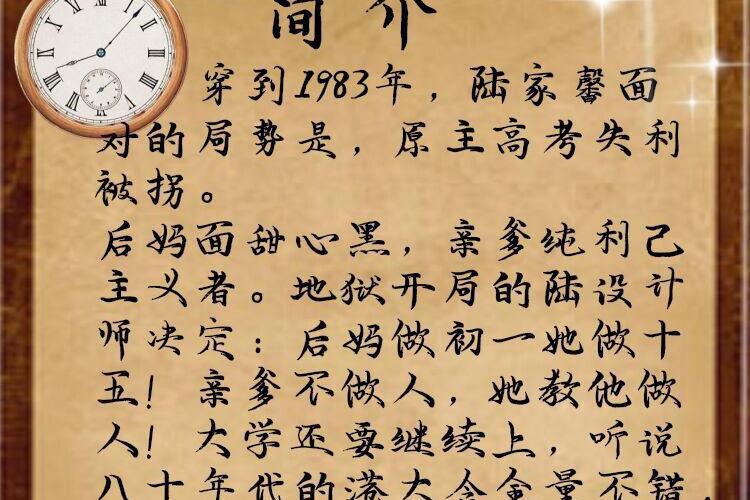 简介
穿到1983年，陆家馨面
对的局势是，原主高考失利
被拐。
后妈面甜心黑，亲爹纯利己
主义者。地狱开局的陆设计
师决定：后妈做初一她做十
五！亲爹不做人，她教他做
人！大学还要继续上，听说
八十年代的港大含金量不错